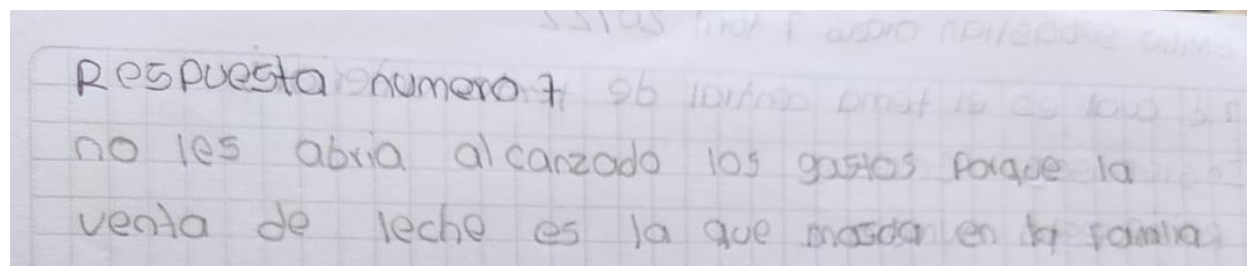 Respuesta numero 7
no les abria alcanzado los gastos porque la
venta de leche es la que mas da en la familia